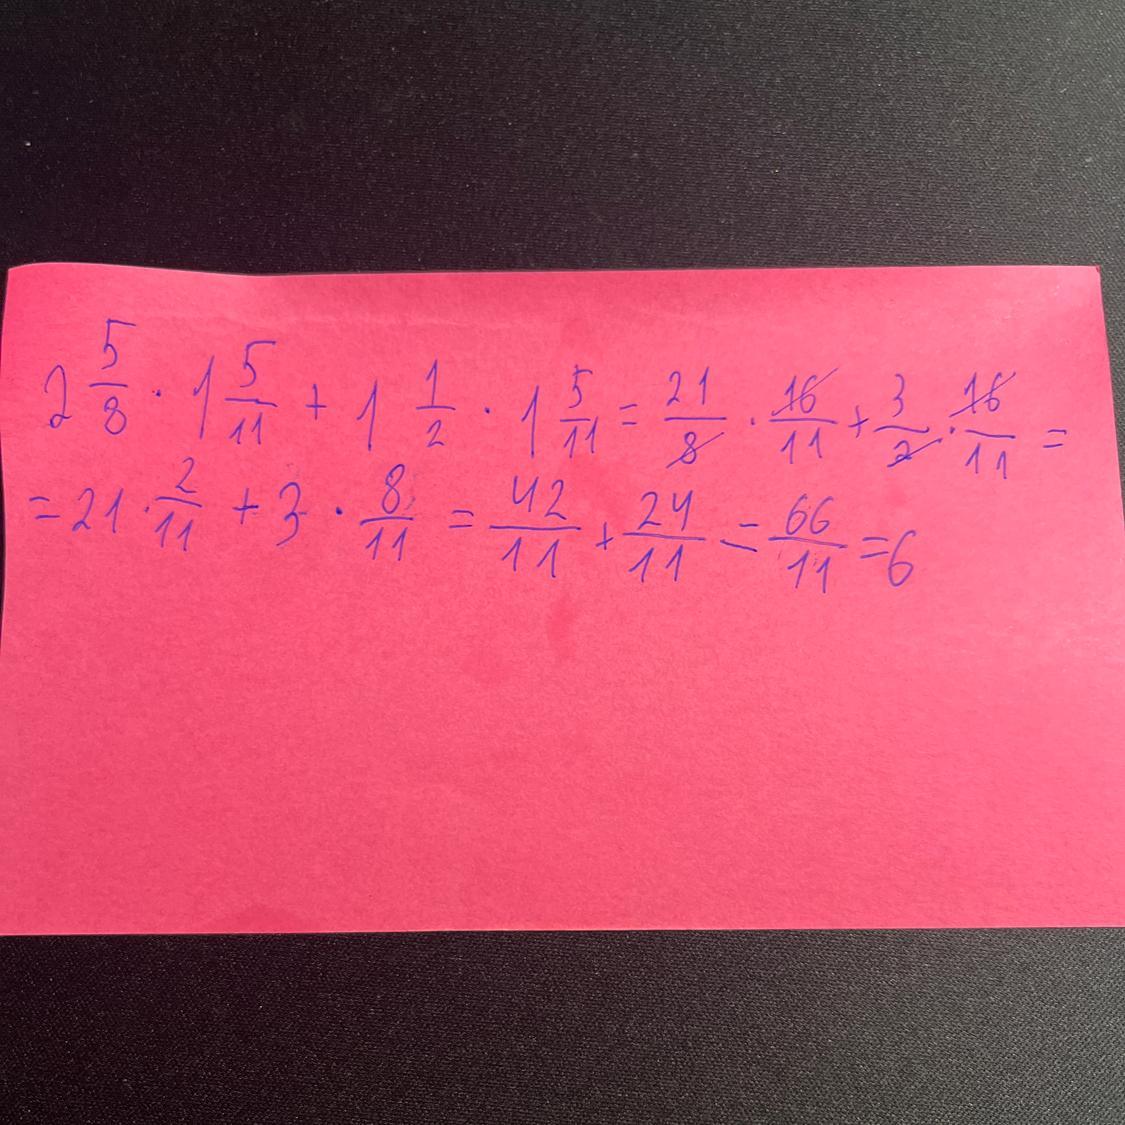 2 5/8 · 1 5/11 + 1 1/2 · 1 5/11 = 21/8 · 16/11 + 3/2 · 16/11 =
= 21 · 2/11 + 3 · 8/11 = 42/11 + 24/11 = 66/11 = 6